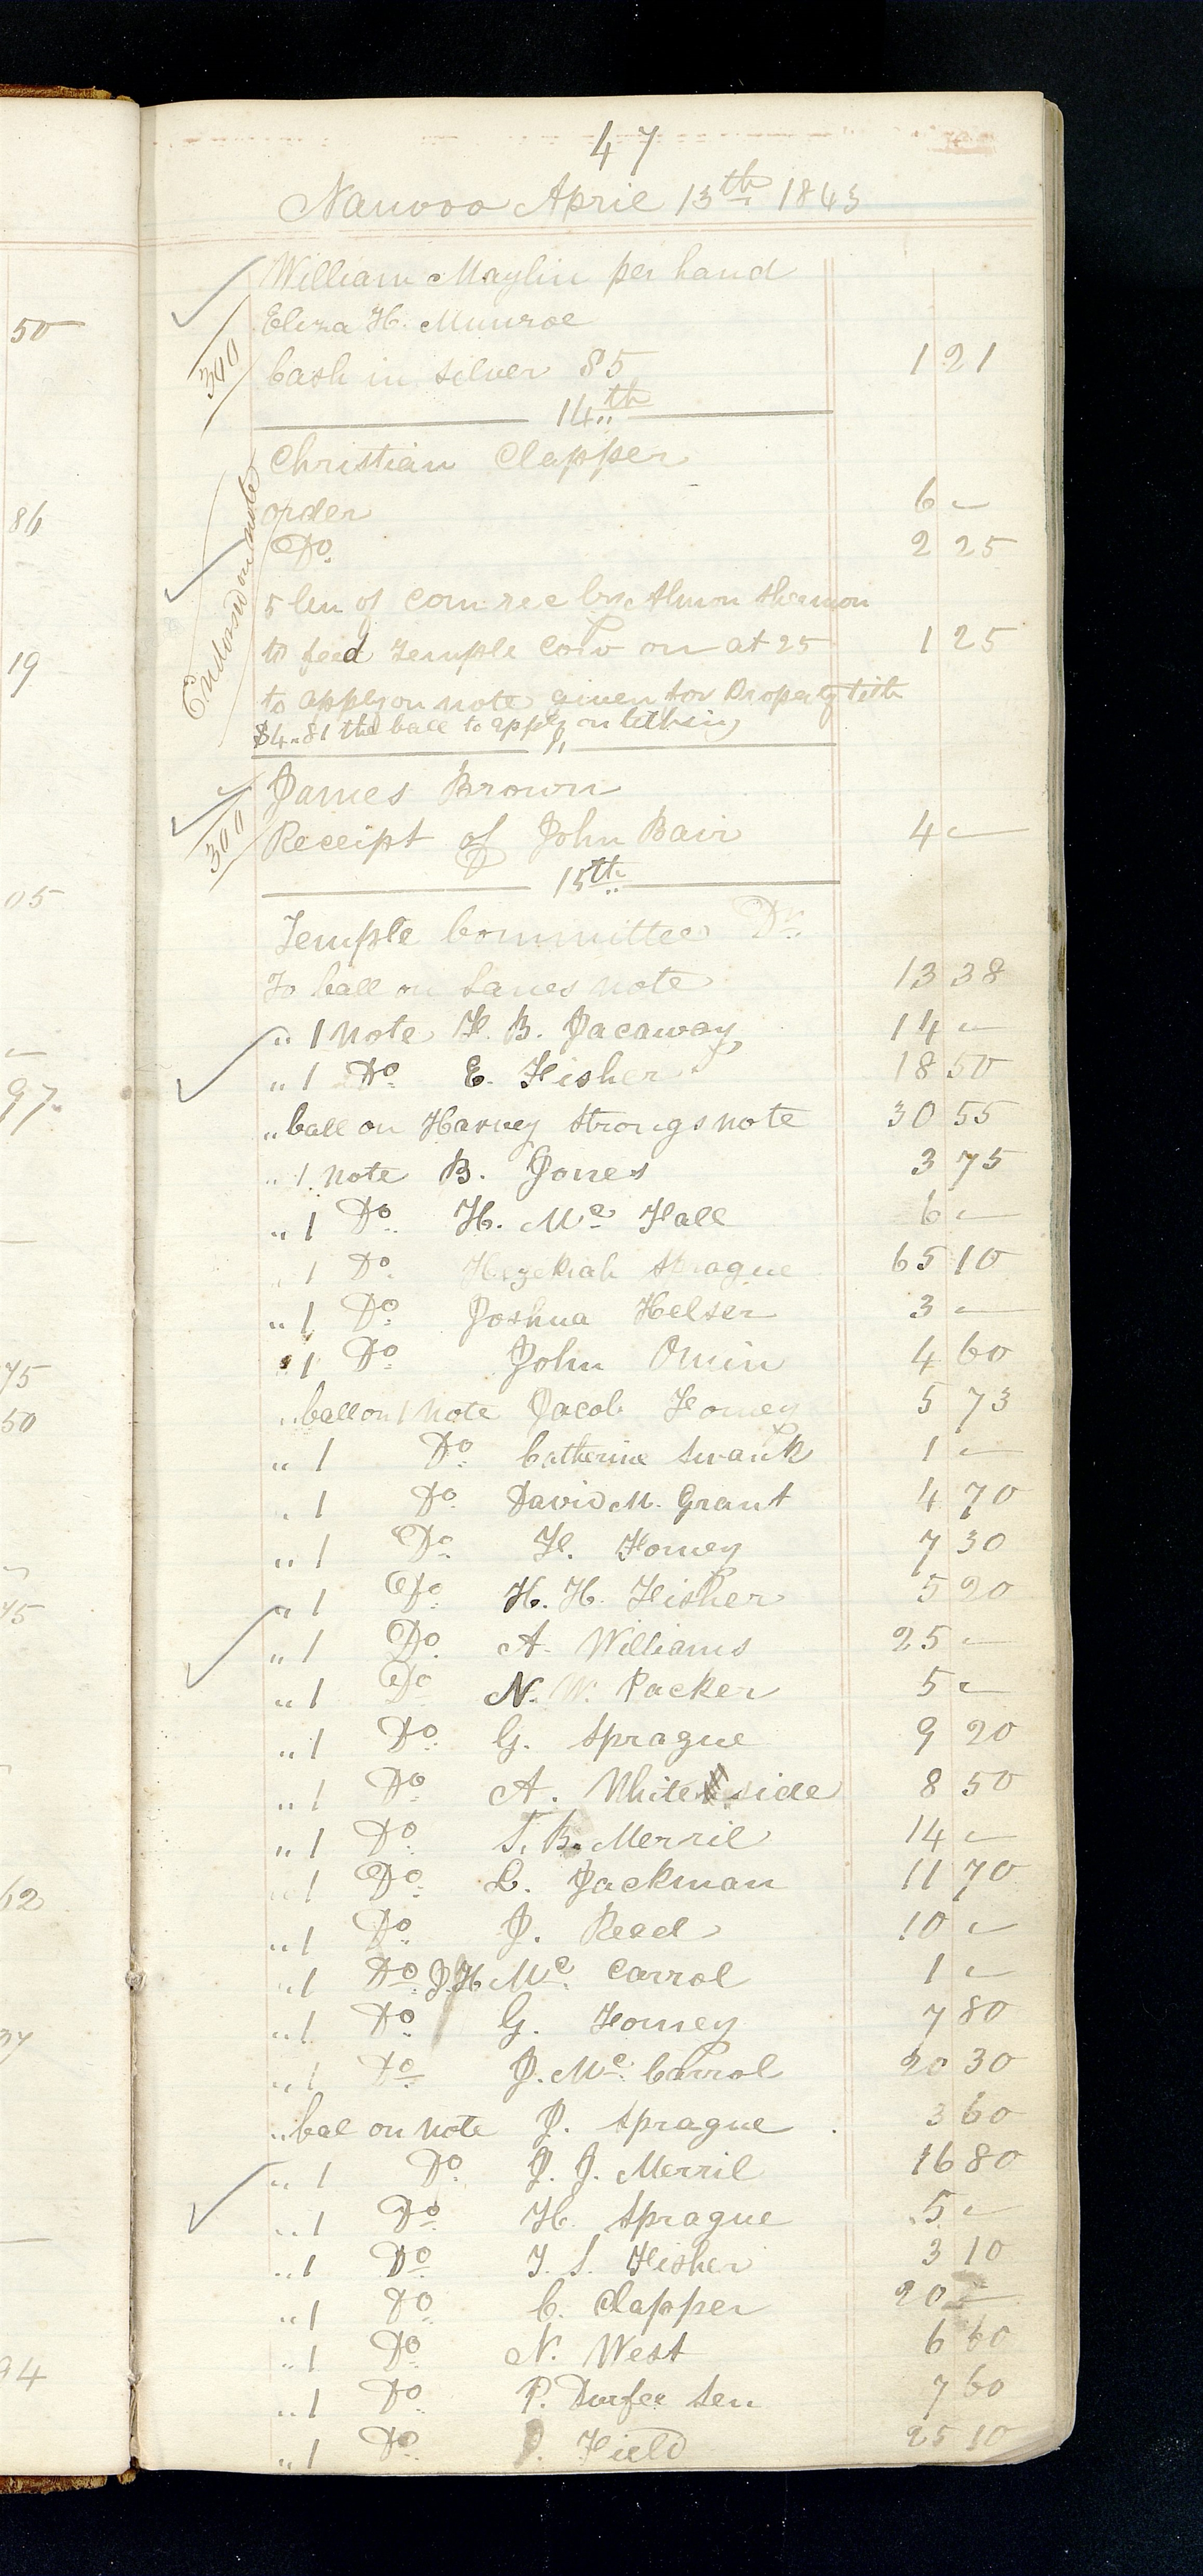 47
Nauvoo April 13th 1843
William Maylin per hand
Eliza H. Munroe
300
Cash in silver 85 1 21
14th
Christian Clapper
order 6 -
Do 2 25
Endorsed on note
5 bu of corn rec by Almon Shermon
to feed Temple cow on at 25 1 25
to apply on note given for Property tith
$4.81 the ball to apply on tithing
"
James Brown
300
Receipt of John Bair 4 -
15th
Temple Committee Dr
To ball on Lanes note 13 38
" 1 Note F. B. Jacaway 14 -
" 1 Do E. Fisher 18 50
" ball on Harvey Strongs note 30 55
" 1 note B. Jones 3 75
" 1 Do H. Mc Fall 6 -
" 1 Do Hezekiah Sprague 65 10
" 1 Do Joshua Helser 3 -
" 1 Do John Omin 4 60
" ball on 1 Note Jacob Forney 5 73
" 1 Do Catherine Swank 1 -
" 1 Do David M. Grant 4 70
" 1 Do F. Forney 7 30
" 1 Do H. H. Fisher 5 20
" 1 Do A. Williams 25 -
" 1 Do N. W. Packer 5 -
" 1 Do G. Sprague 9 20
" 1 Do A. White side 8 50
" 1 Do T. B. Merril 14 -
" 1 Do L. Jackman 11 70
" 1 Do J. Reed 10 -
" 1 Do J. H Mc Carrol 1 -
" 1 Do G. Forney 7 80
" 1 Do J. Mc Carrol 20 30
" bal on note J. Sprague 3 60
" 1 Do J. J. Merril 16 80
" 1 Do H. Sprague 5 -
" 1 Do T. S. Fisher 3 10
" 1 Do C. Clapper 20 -
" 1 Do N. West 6 60
" 1 Do P. Durfee Sen 7 60
" 1 Do Field 25 10
50
86
19
05
97
75
50
75
62
37
94